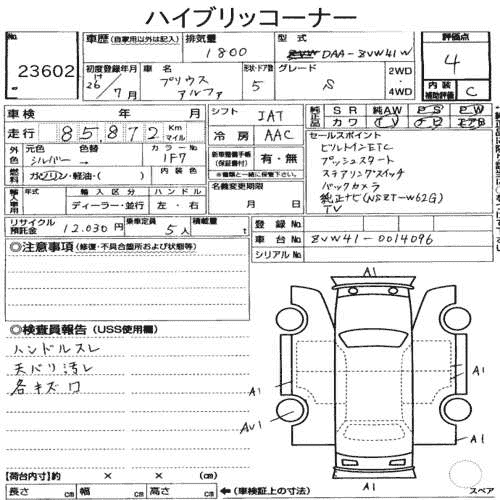 ハイブリッコーナー
No.
23602
車歴 (自家用以外は記入)
排気量
1800
型式
DAA-ZVW41W
評価点
4
初度登録年月
26年 7月
車名
プリウス
アルファ
形状・ドア数
5
グレード
S
2WD
・
4WD
内装
補助評価
C
車検 年 月
シフト
IAT
純正品
SR 純AW PS PW
カワ TV ナビ エアB
走行 85,872 Km マイル
冷房
AAC
セールスポイント
ビルトインETC
プッシュスタート
ステアリングスイッチ
バックカメラ
純正ナビ(NSZT-W62G)
TV
外色
元色
シルバー →
色替
カラーNo
1F7
新車整備手帳
(保証書付)
有・無
※書類と一緒に保管下さい。
燃料
ガソリン・軽油・( )
内装色
輸入車用
年式
輸入区分
ハンドル
ディーラー・並行
左・右
名義変更期限
月 日
リサイクル
預託金
12.030円
乗車定員
5人
積載量
t
登録No
車台No
ZVW41-0014096
シリアルNo
◎注意事項 (修復・不具合箇所および状態等)
◎検査員報告 (USS使用欄)
ハンドルスレ
天バリ汚レ
各キズワ
A1
A1
A1
AU1
A1
A1
【荷台内寸】約 × × (cm)
長さ cm 幅 cm 高さ cm
←(車検証上の寸法)
スペア